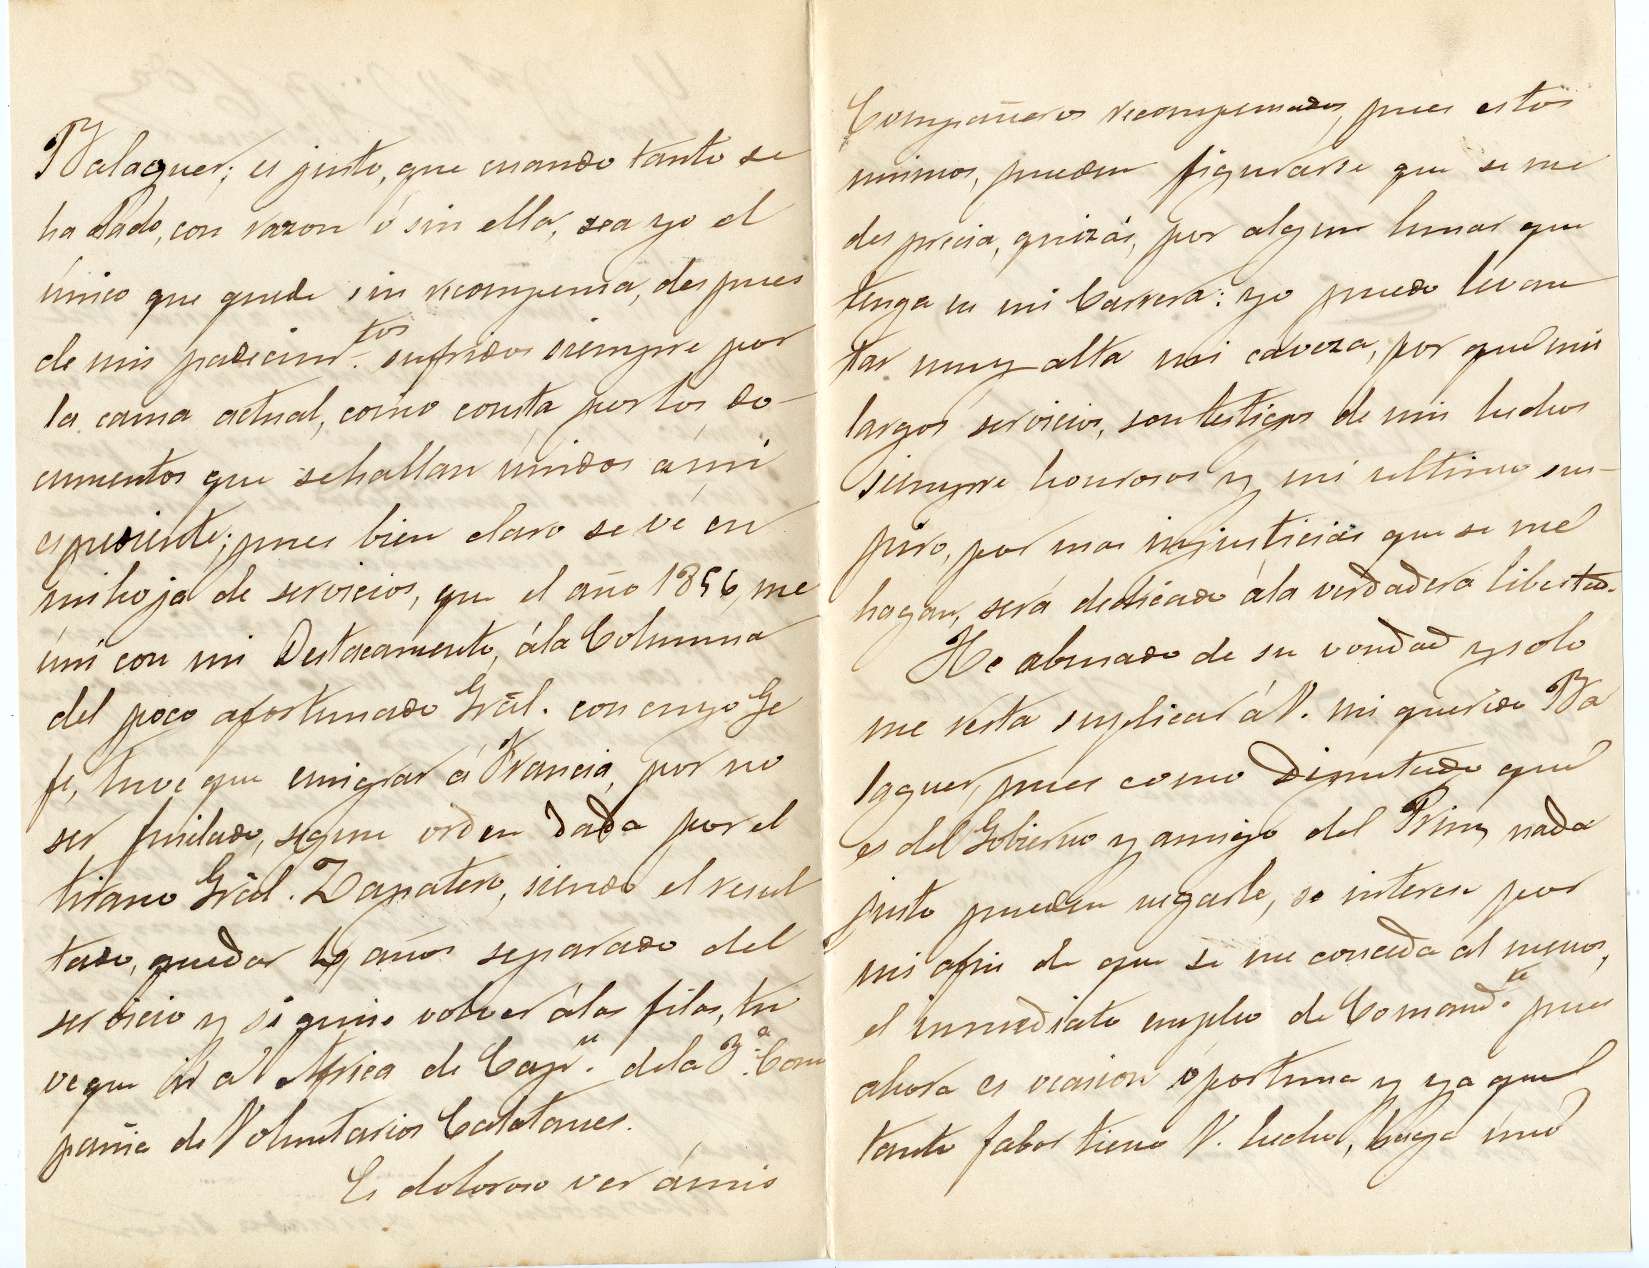 Balaguer; es justo, que cuando tanto se
ha dado, con razon ó sin ella, sea yo el
único que quede sin recompensa, despues
de mis padecim.tos sufridos siempre por
la causa actual, como consta por los do-
cumentos que se hallan únidos á mi
espediente; pues bien claro se vé en
mi hoja de servicios, que el año 1856, me
úni con mi Destacamento, á la Columna
del poco afortunado Gräl. con cuyo Ge
fe, tuve que emigrar á Francia, por no
ser fusilado, segun orden dada por el
tirano Gräl. Zapatero, siendo el resul
tado, quedar años separado del
servicio y si quise volver á las filas, tu
ve que ir á Africa de Cap.n de la 3.a Com
pañia de Voluntarios Catalanes.
Es doloroso ver á mis
Compañeros recompensados, pues estos
mismos, pueden figurarse que se me
desprecia, quizás, por algun lunar que
tenga en mi Carrera: yo puedo levan
tar muy alta mi caveza, por que mis
largos servicios, son testigos de mis hechos
siempre honrosos y mi ultimo sus-
piro, por mas injusticias que se me
hagan, sera dedicado á la verdadera libertad.
He abusado de su vondad y solo
me resta suplicar á V. mi querido Ba
laguer, pues como Diputado que
es del Gobierno y amigo del Prim, nada
justo pueden negarle, se interese por
mi afin de que se me conceda al menos,
el inmediato empleo de Comand.te pues
ahora es ocasion oportuna y ya que
tanto fabor tiene V. hecho, haga